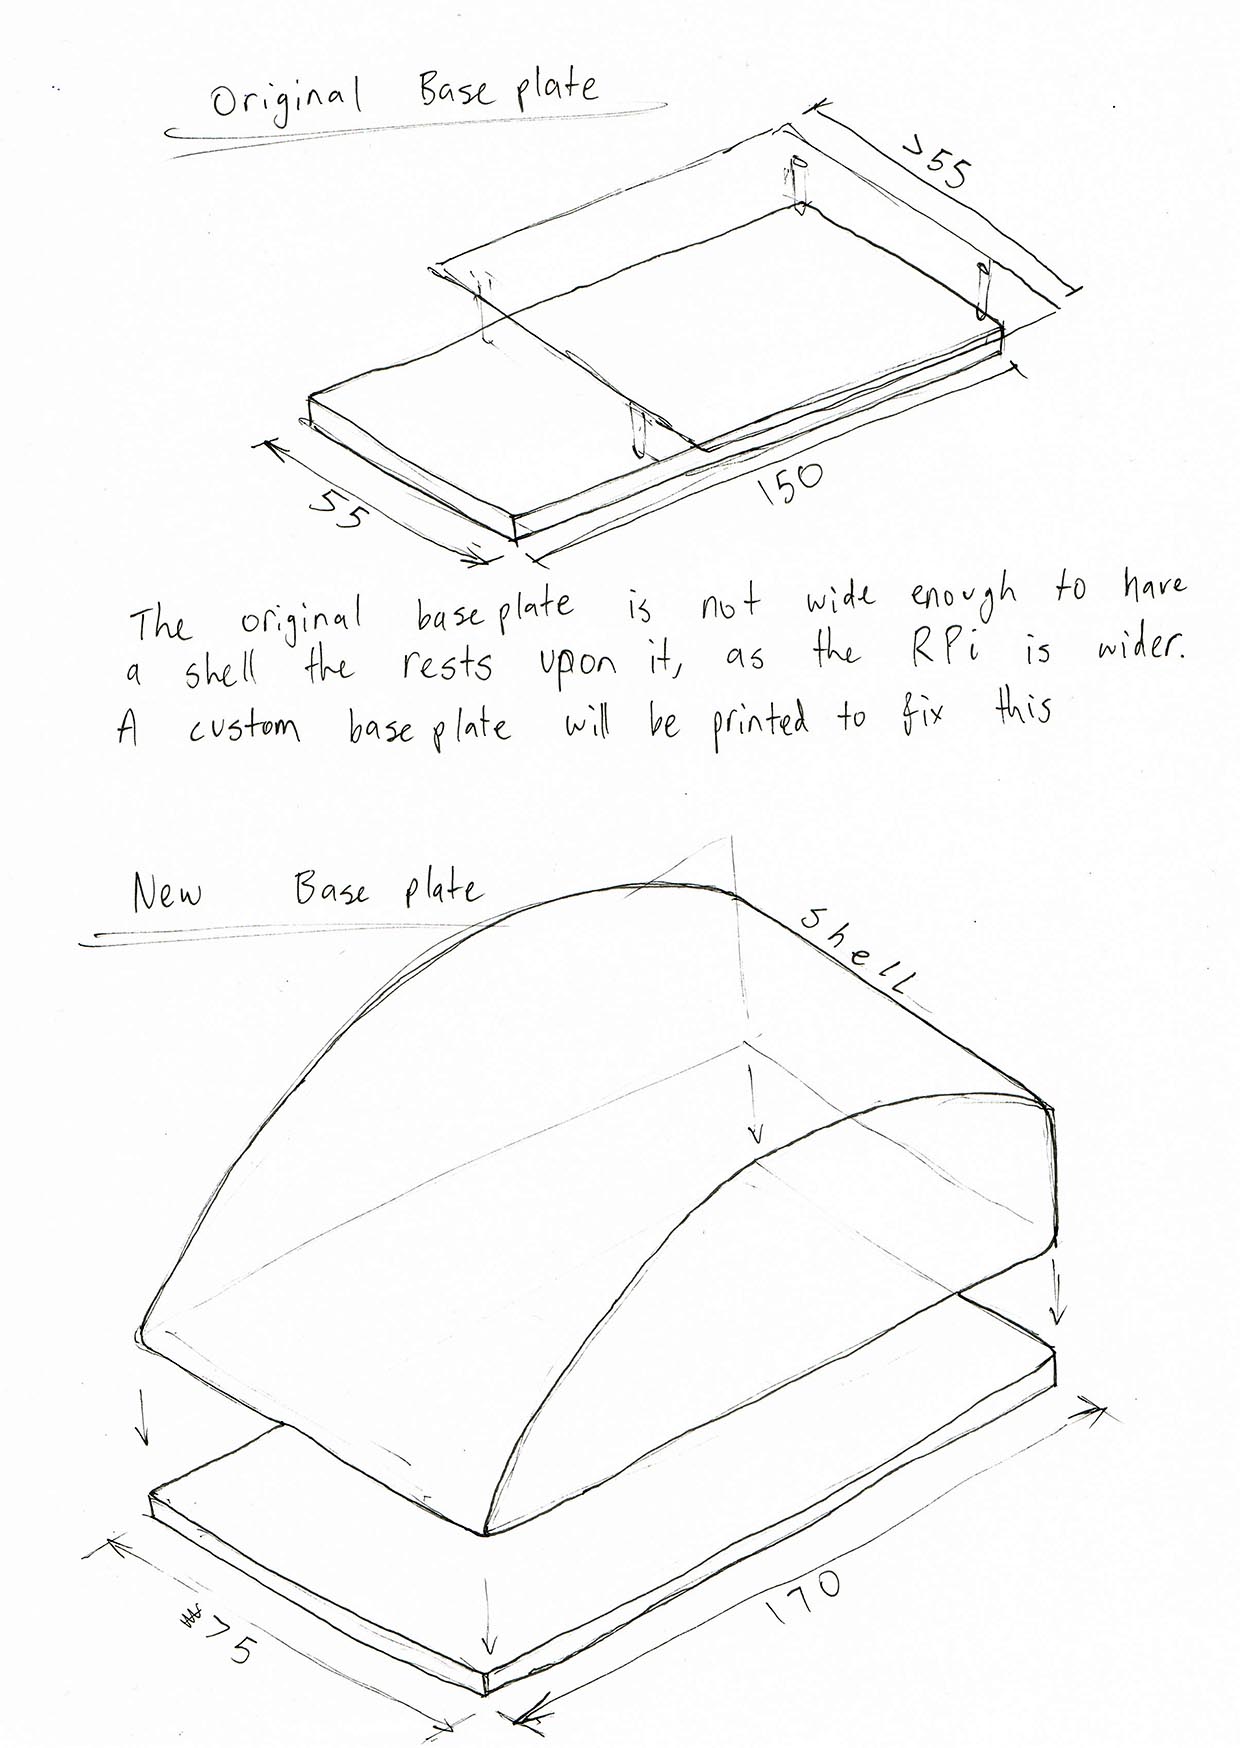 Original Base plate
>55
55
150
The original base plate is not wide enough to have
a shell the rests upon it, as the RPi is wider.
A custom base plate will be printed to fix this
New Base plate
Shell
75
170